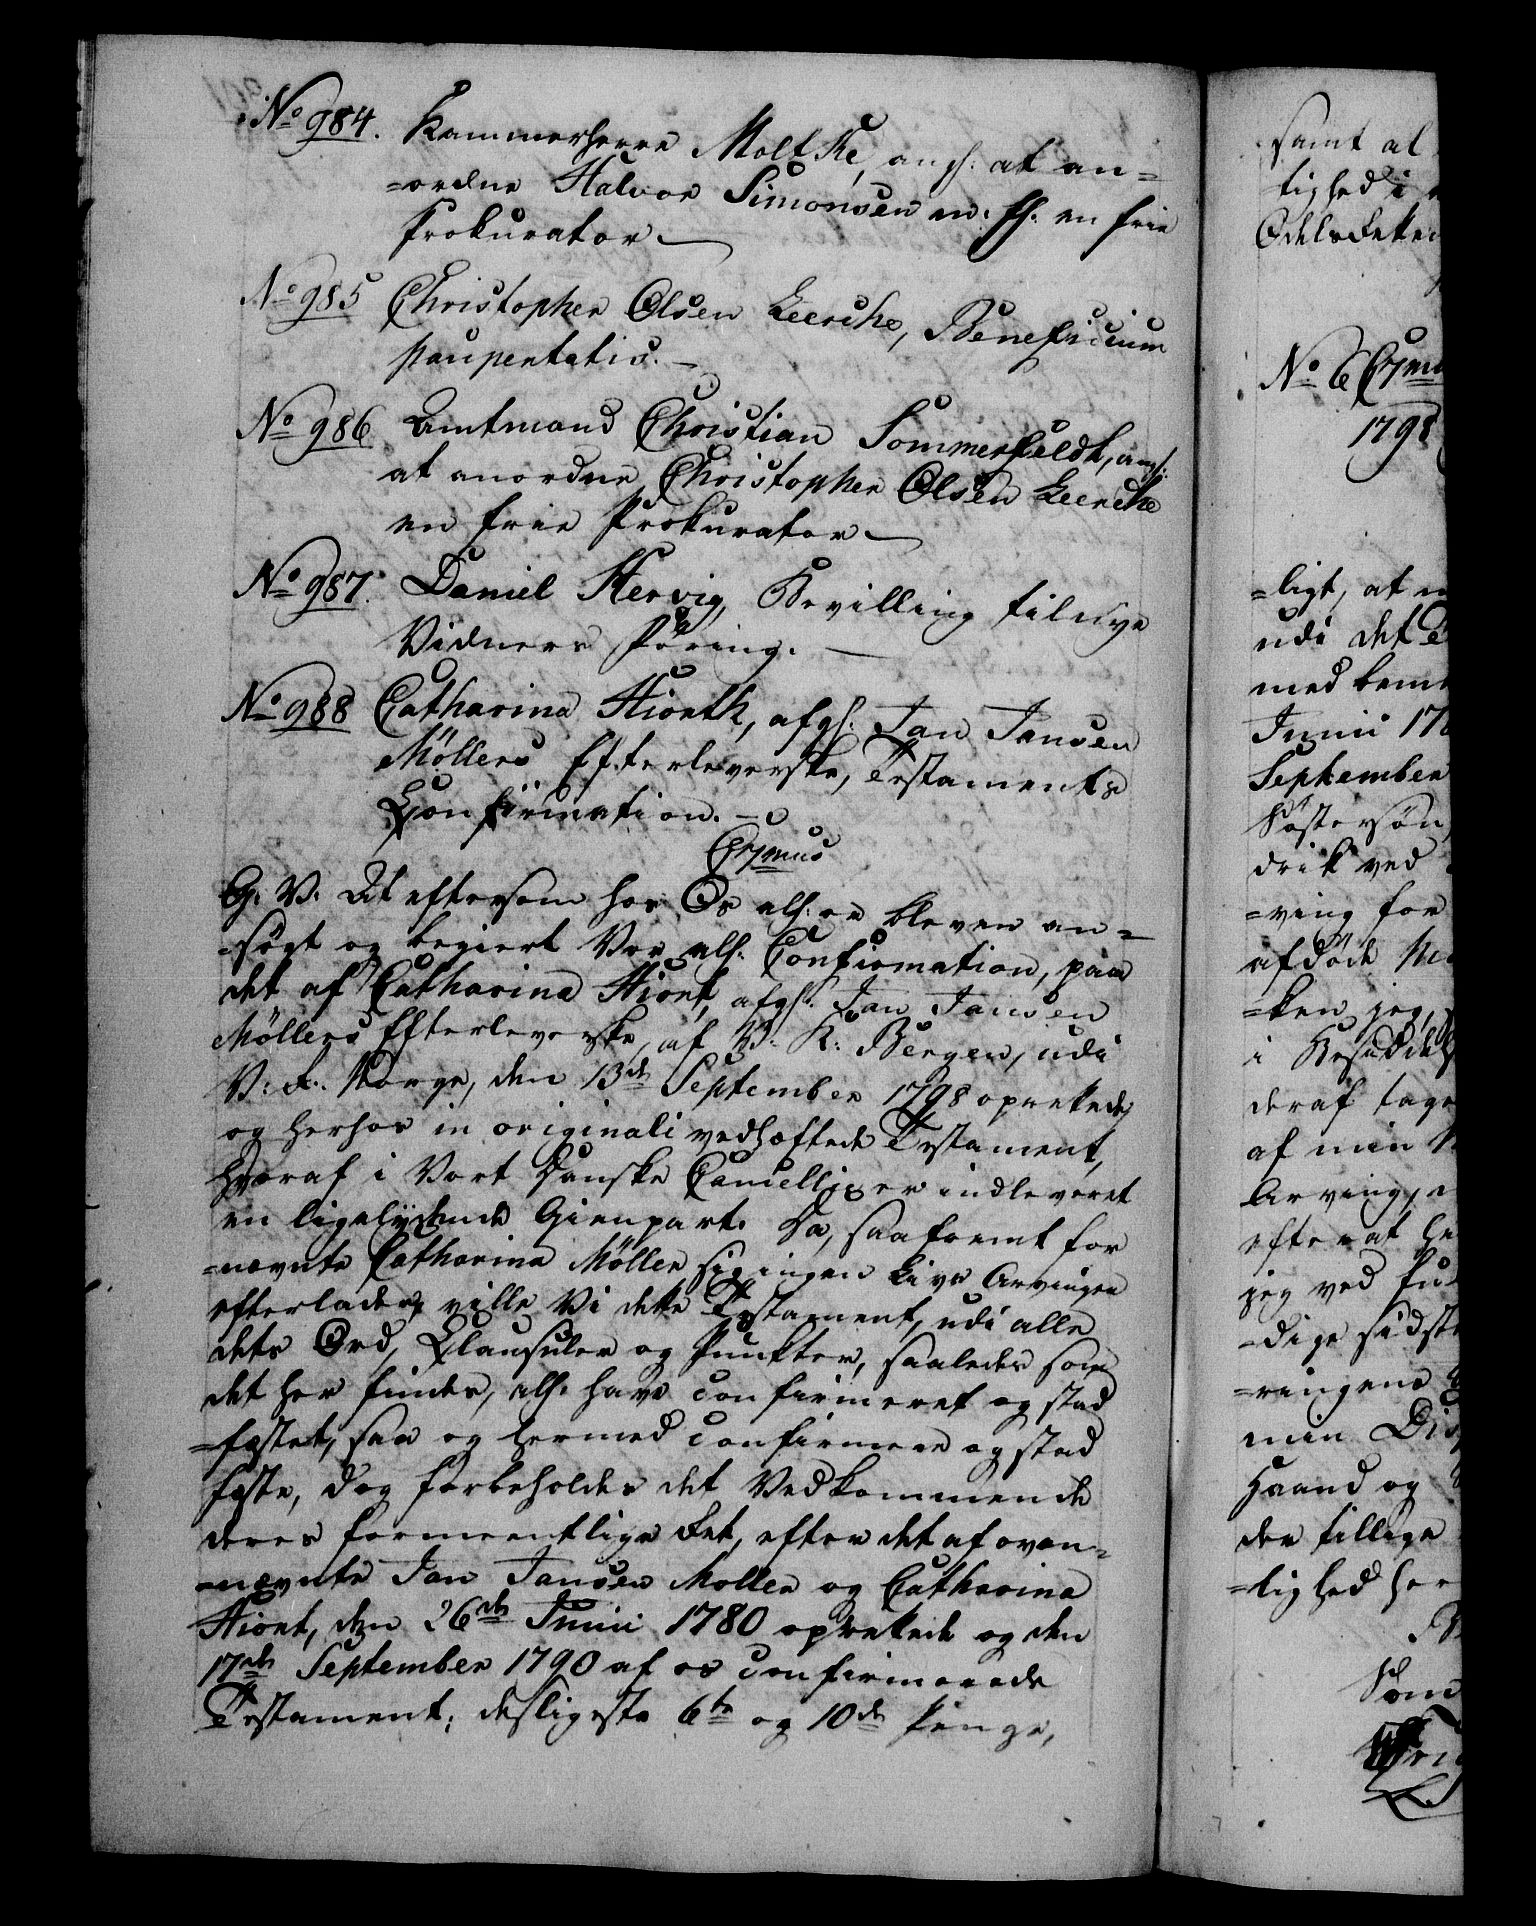 No 984. Kammerherre Moltke, angl: at an=
=ordne Halvor Simonsen m: fl: en frie
Prokurator
No 985 Christopher Olsen Leerche, Beneficium
paupertatis.
No 986 Amtmand Christian Sommerfeldt, angl:
at anordne Christopher Olsen Leerche
en frie Prokurator
No 987. Daniel Hervig, Bevilling til nye
Vidners Føring.
No 988 Catharina Hiorth, afgl: Jan Jansen
Møllers Efterleverske, Testaments
Confirmation.
G. V. At eftersom hos Os all: er bleven an=
=søgt og begiert Vor all: Confirmation, paa
det af Catharina Hiort, afgl: Jan Jansen
Møllers Efterleverske, af V: K: Bergen, udi
V: R: Norge, den 13de September 1798 oprettede,
og herhos in originali vedhæftede Testament,
hvoraf i Vort Danske Cancellie er indleveret
en ligelydende Gienpart. Da, saafremt for
=nævnte Catharina Møller sig ingen Livs Arvinger
efterlader, ville Vi dette Testament, udi alle
dets Ord, Clausuler og Punkter, saaledes som
det her findes, all: have confirmeret og stad
=fæstet, saa og hermed confirmere og stad
fæste, dog forbeholdes det Vedkommende
deres formeentlige Ret, efter det af oven=
=nævnte Jan Jansen Møller og Catharina
Hiort, den 26de Junii 1780 oprettede og den
17de September 1790 af os confirmerede
Testament; desligeste 6te og 10de Penge,
samt al
tighed i
No 6
1798
=ligt, at
udi det
med
Junii 178
September
Søstersøn,
drik ved
=ving for
afdøde
=ken jeg,
i
deraf tage
af min
Arving,
efterat
jeg ved
=dige sidste
=ringene
min
Haand og
der tillige
=lighed her